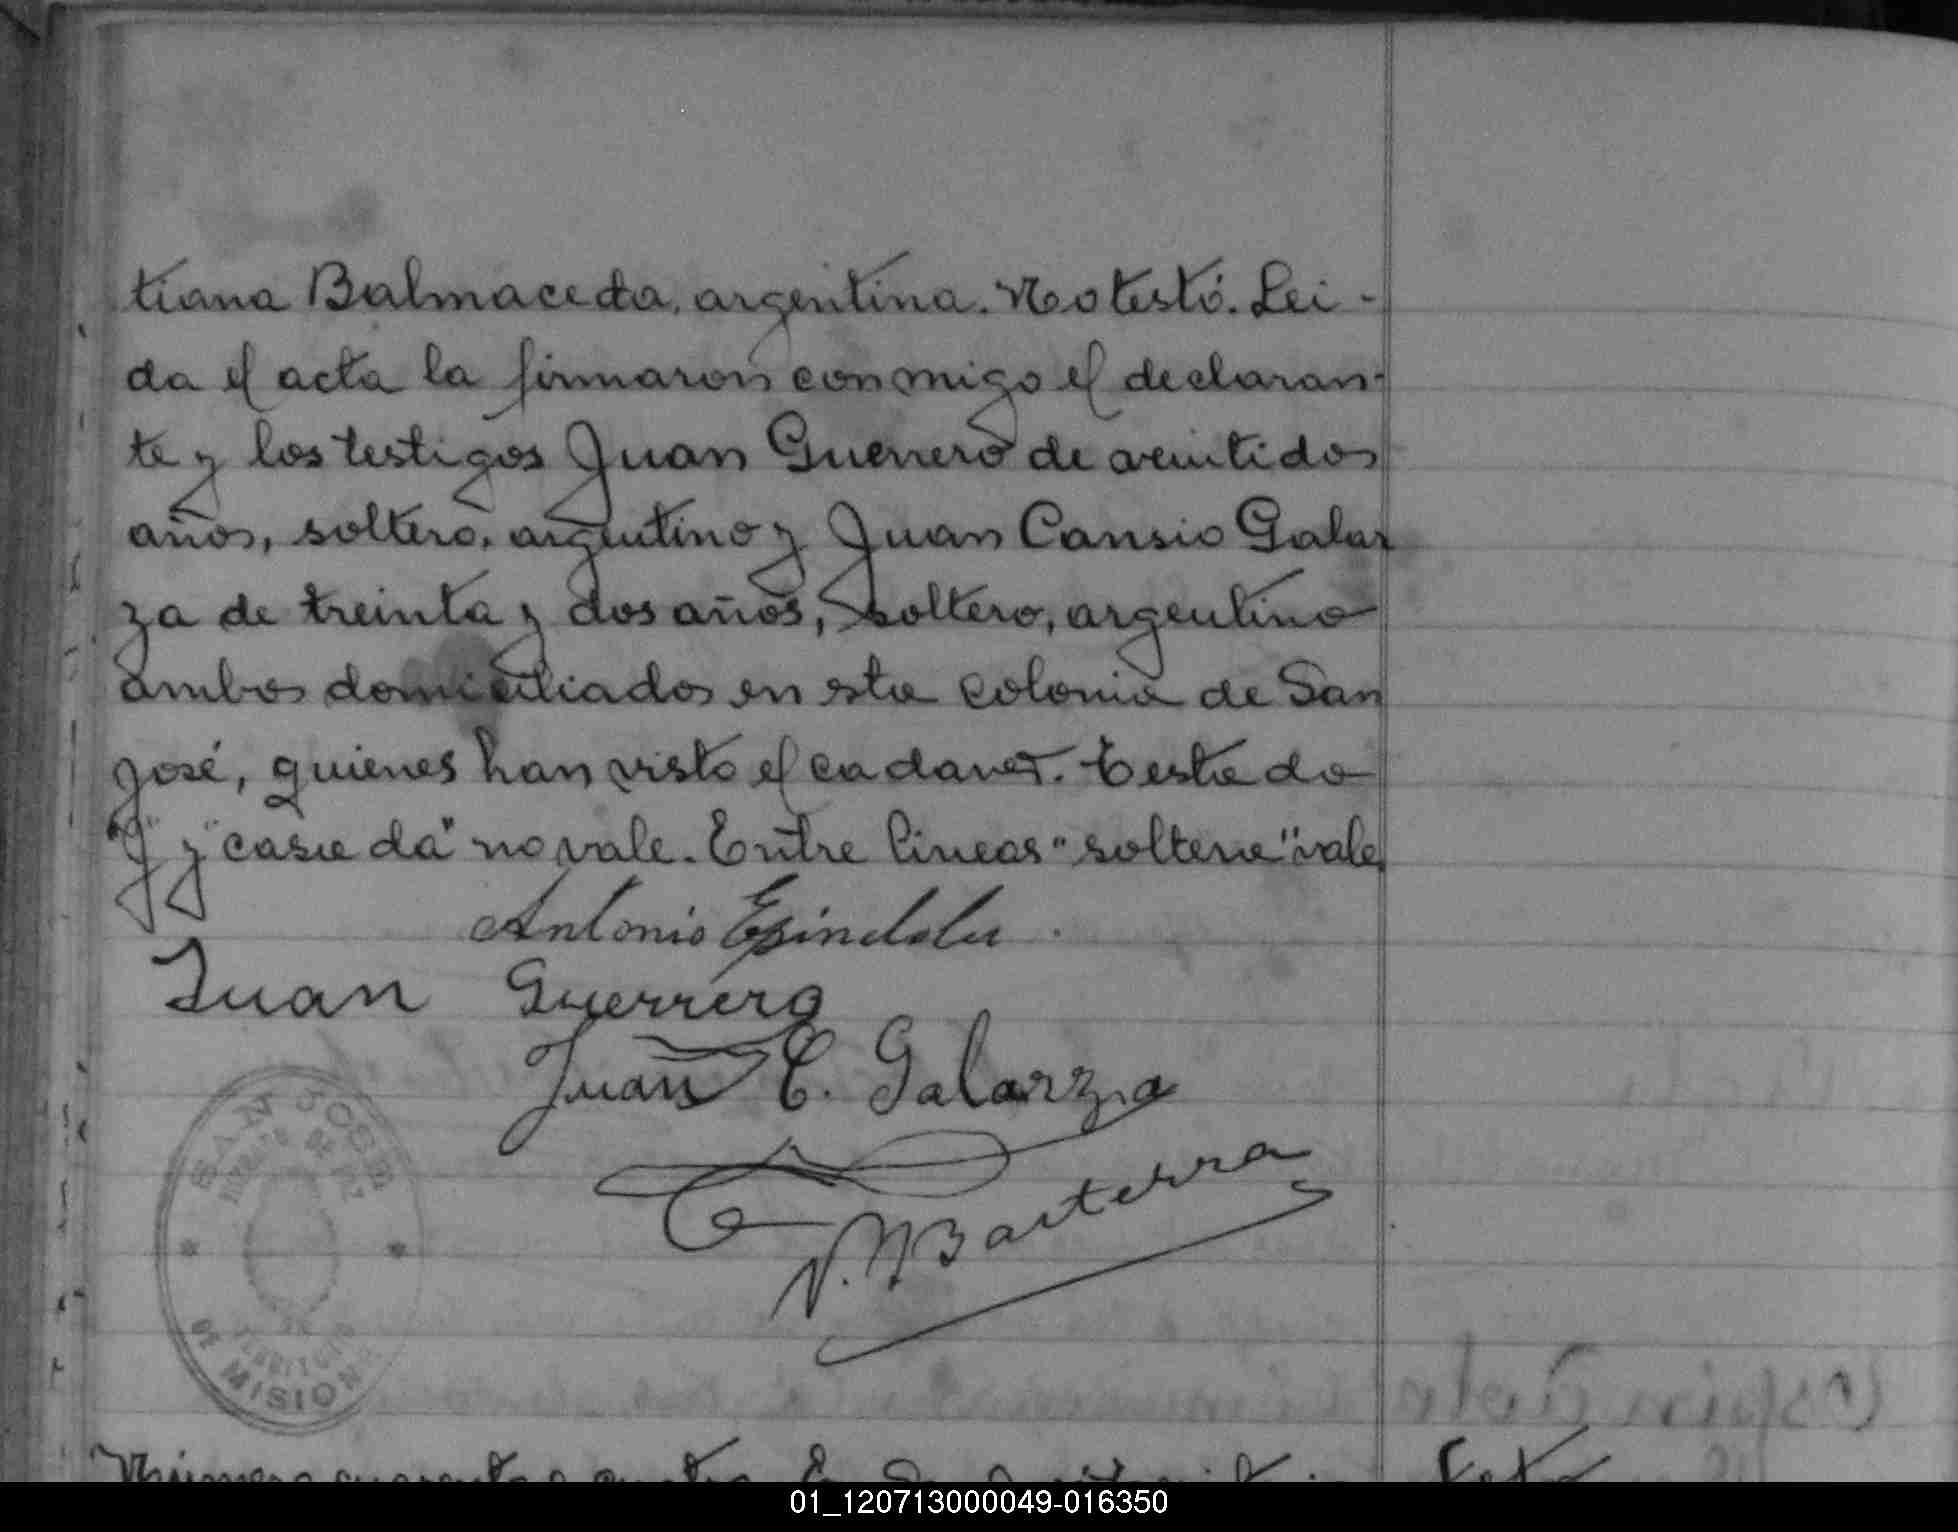 tiana Balmaceda, argentina. No testó. Lei-
da el acta la firmaron conmigo el declaran-
te y los testigos Juan Guerrero de veintidos
años, soltero, argentino y Juan Cansio Galar
za de treinta y dos años, soltero, argentino
ambos domiciliados en esta colonia de San
José, quienes han visto el cadaver. Testado
"J" y "casada" no vale. Entre lineas "soltera" vale
Antonio Espindola
Juan Guerrero
Juan C. Galarza
N. Basterra
SAN JOSE
JUZGADO DE PAZ
TERRITORIO
DE MISIONES
Número cuarenta y cuatro. En
01_120713000049-016350